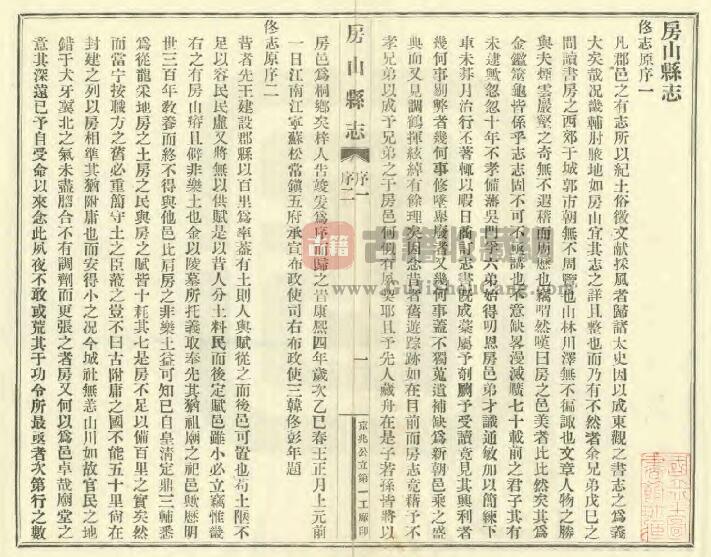 房山縣志
修志原序一
凡郡邑之有志所以紀土俗徵文献採風者歸諸太史因以成東觀之書志之爲義
大矣哉况畿輔肘腋地如房山宜其志之詳且整也而乃有不然者余兄弟戊巳之
間讀書房之西郊于城郭市朝無不周覽也山林川澤無不徧諏也文章人物之勝
與夫煙雲巖壑之奇無不遐稽而周歷也竊喟然嘆曰房之邑美者比比然矣其爲
金鑑蓍龜皆係乎志志固不可不亟講也不意缺畧漫滅廣七十載前之君子其有
未建歟忽忽十年不孝備藩吳門季六弟始得叨恩房邑弟才識通敏加以簡練下
車未朞月治行丕著輒以暇日商訂志書既成藁屬予剞劂予受讀竟見其興利者
幾何事剔弊者幾何事修墜舉廢者又幾何事蓋不獨蒐遺補缺爲新朝邑乘之盛
典而又見調鶴揮絃綽有餘理矣因念昔者舊遊踪跡如在目前而房志竟藉予不
孝兄弟以成予兄弟之于房邑何如有夙矣耶且予先人藏舟在是子若孫皆將以
房邑爲桐鄉矣梓人告竣爰爲序而歸之旹康熙四年歲次乙巳春王正月上元前
一日江南江寧蘇松常鎮五府承宣布政使司右布政使三韓佟彭年題
修志原序二
昔者先王建設郡縣以百里爲率蓋有土則人與賦從之而後邑可置也苟土陿不
足以容民民虛又將無以供賦是以昔人分土料民而後定賦邑雖小必立竊惟畿
右之有房山瘠且僻非樂土也金以陵墓所托義取奉先其猶祖廟之祀邑歟歷明
世三百年教養而終不得與他邑比肩房之非樂土益可知已自皇清定鼎三輔悉
爲從龍采地房之土房之民與房之賦皆十耗其七是房不足以備百里之實矣然
而當宁按職方之舊必重簡守土之臣蒞之豈不曰古附庸之國不能五十里尙在
封建之列以房相準其猶附庸也而安得小之况今城社無恙山川如故官民之地
錯于犬牙冀北之氣未盡脗合不有調劑而更張之者房又何以爲邑卓哉廟堂之
意其深遠已予自受命以來念此夙夜不敢或荒其于功令所最亟者次第行之數
房山縣志
序一
序二
一
京兆公立第一工廠印
古籍收藏网
www.GujiShouCang.com